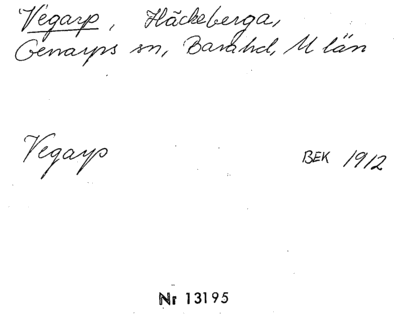 Vegarp, Häckeberga,
Genarps sn, Bara hd, M län
Vegarp BEK 1912
Nr 13195